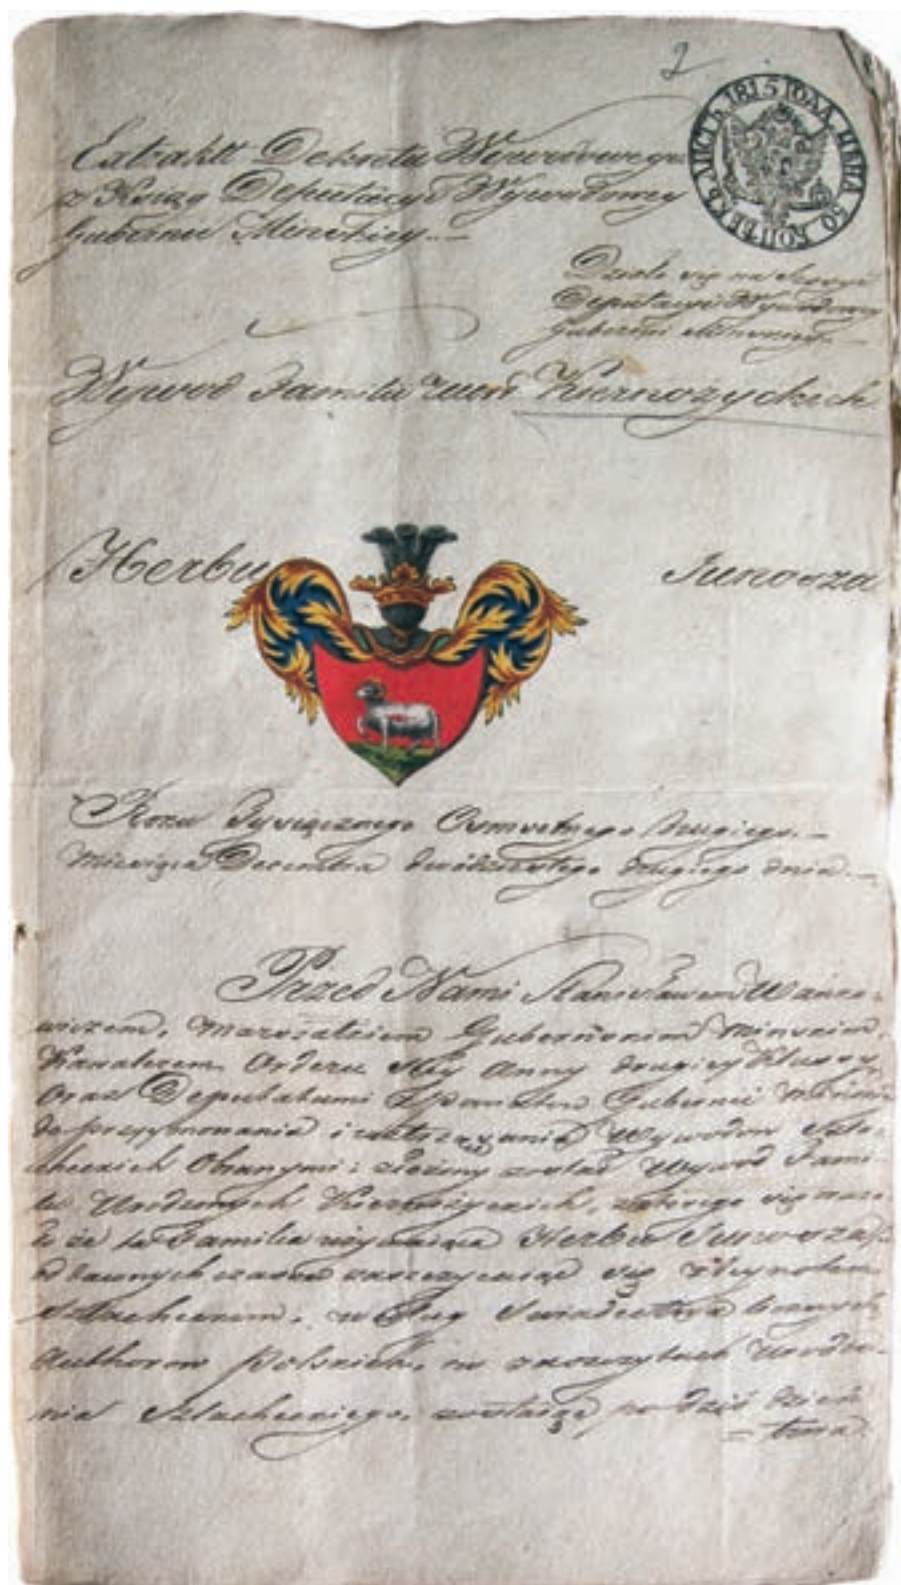 2
ЛИСТЪ 1815 ГОДА ЦѢНА 50 КОПѢЕКЪ
Extrakt Dekretu Wywodowego
z Xsiąg Deputacyi Wywodowey
Gubernii Minskiey.
Działo się na Sessyi
Deputacyi Wywodowey
Gubernii Minskiey.
Wywod Familii Kiernozyckich
Herbu Junosza
Roku Tysiącznego Osmsetnego drugiego.
Miesiąca Decembra dwudziestego drugiego dnia.
Przed Nami Stanisławem Wańko-
wiczem, Marszałkiem Gubernskim Minskim,
Kawalerem Orderu Stey Anny drugiey Klassy,
Oraz Deputatami z Powiatow Gubernii
do przyymowania i roztrząsania Wywodow Szla-
checkich Obranymi: złożony został Wywod Fami-
lii Urodzonych Kiernozyckich, z ktorego się
że ta Familia używaiąca Herbu Junosza
od dawnych czasow zaszczycaiąc się Kleynotem
Szlacheckim, w dług Swiadectwa
Authorow Polskich, w zaszczytach Urodze-
nia Szlacheckiego, po dziś dzień